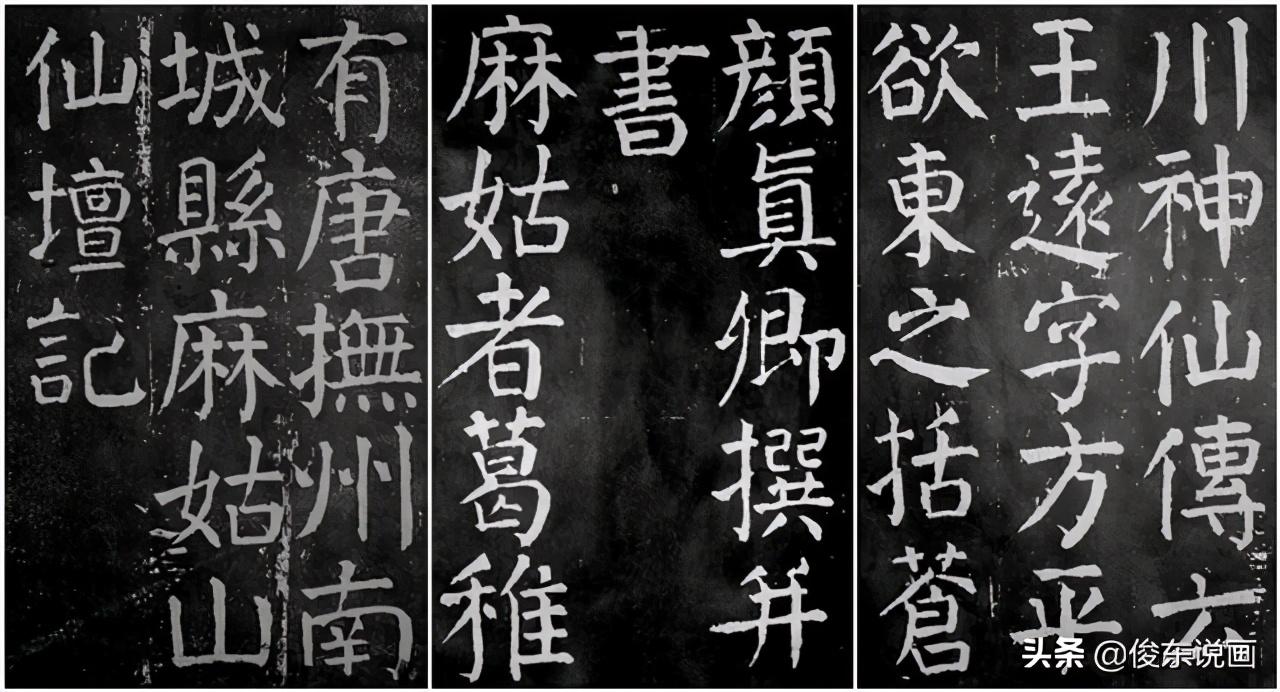 有唐撫州南
城縣麻姑山
仙壇記
顔眞卿撰并
書
麻姑者葛稚
川神仙傳云
王遠字方平
欲東之括蒼
头条 @俊东说画